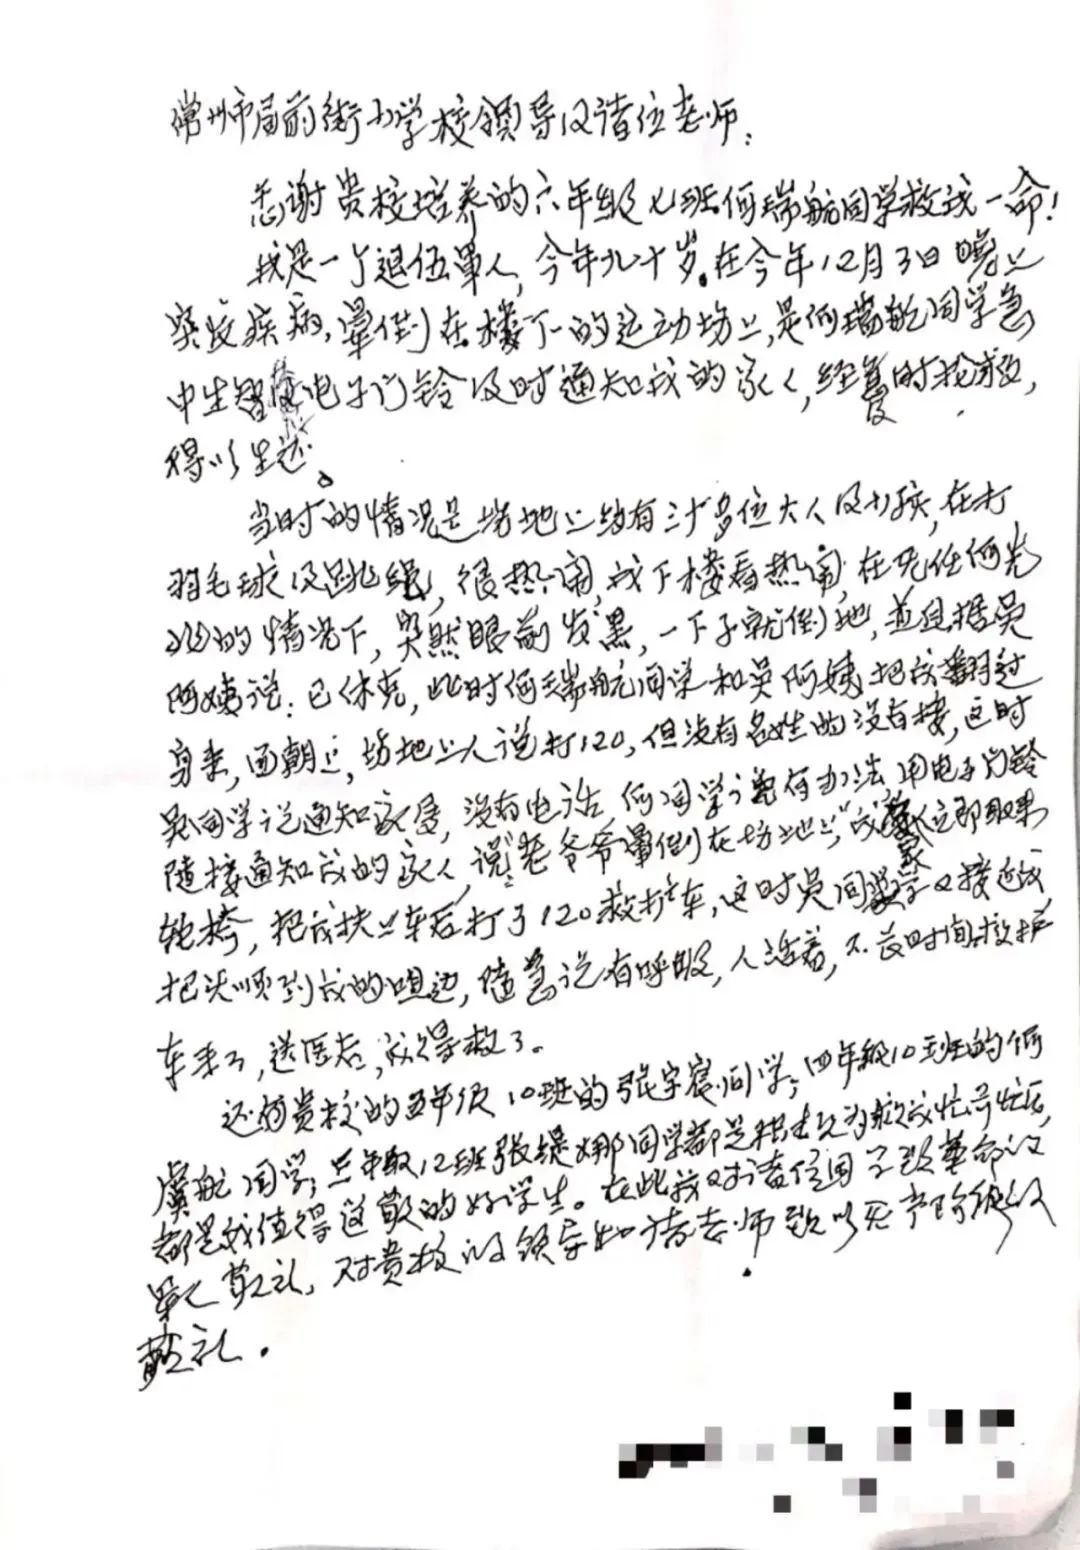 常州市局前街小学校领导及诸位老师:
感谢贵校培养的六年级七班何瑞航同学救我一命!
我是一个退伍军人,今年九十岁。在今年12月3日晚上
突发疾病,晕倒在楼下的运动场上,是何瑞航同学急
中生智 电子门铃及时通知我的家人,经及时抢救,
得以生还。
当时的情况是场地上约有三十多位大人及小孩,在打
羽毛球及跳绳,很热闹,我下楼看热闹,在无任何先
兆的情况下,突然眼前发黑,一下子就倒地,並且据吴
阿姨说:已休克,此时何瑞航同学和吴阿姨把我翻过
身来,面朝上,场地上人说打120,但没有名姓的没有接,这时
吴同学说通知家属,没有电话 何同学 办法用电子门铃
随接通知我的家人,说:"老爷爷晕倒在场地上,"我家人立即取来
轮椅,把我扶上车后打了120救护车,这时吴同学又接近我
把头顺到我的咀边,随急说有呼吸,人活着,不长时间,救护
车来了,送医后,我得救了。
还有贵校的五年级10班的张宇宸同学;四年级10班的何
虞航同学;三年级12班张缇娜同学都是 为救我忙前忙后,
都是我值得 的好学生。在此我对诸位同学致革命的
军人敬礼,对贵校的领导和诸老师致以
敬礼。